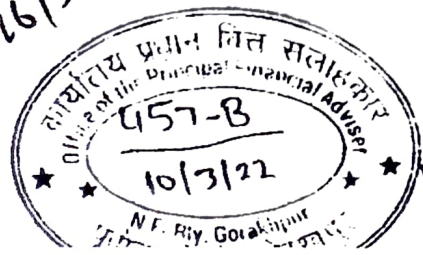 16/
कार्यालय प्रधान वित्त सलाहकार
Office of the Principal Financial Adviser
457-B
10/3/22
Rly. Gorakhpur